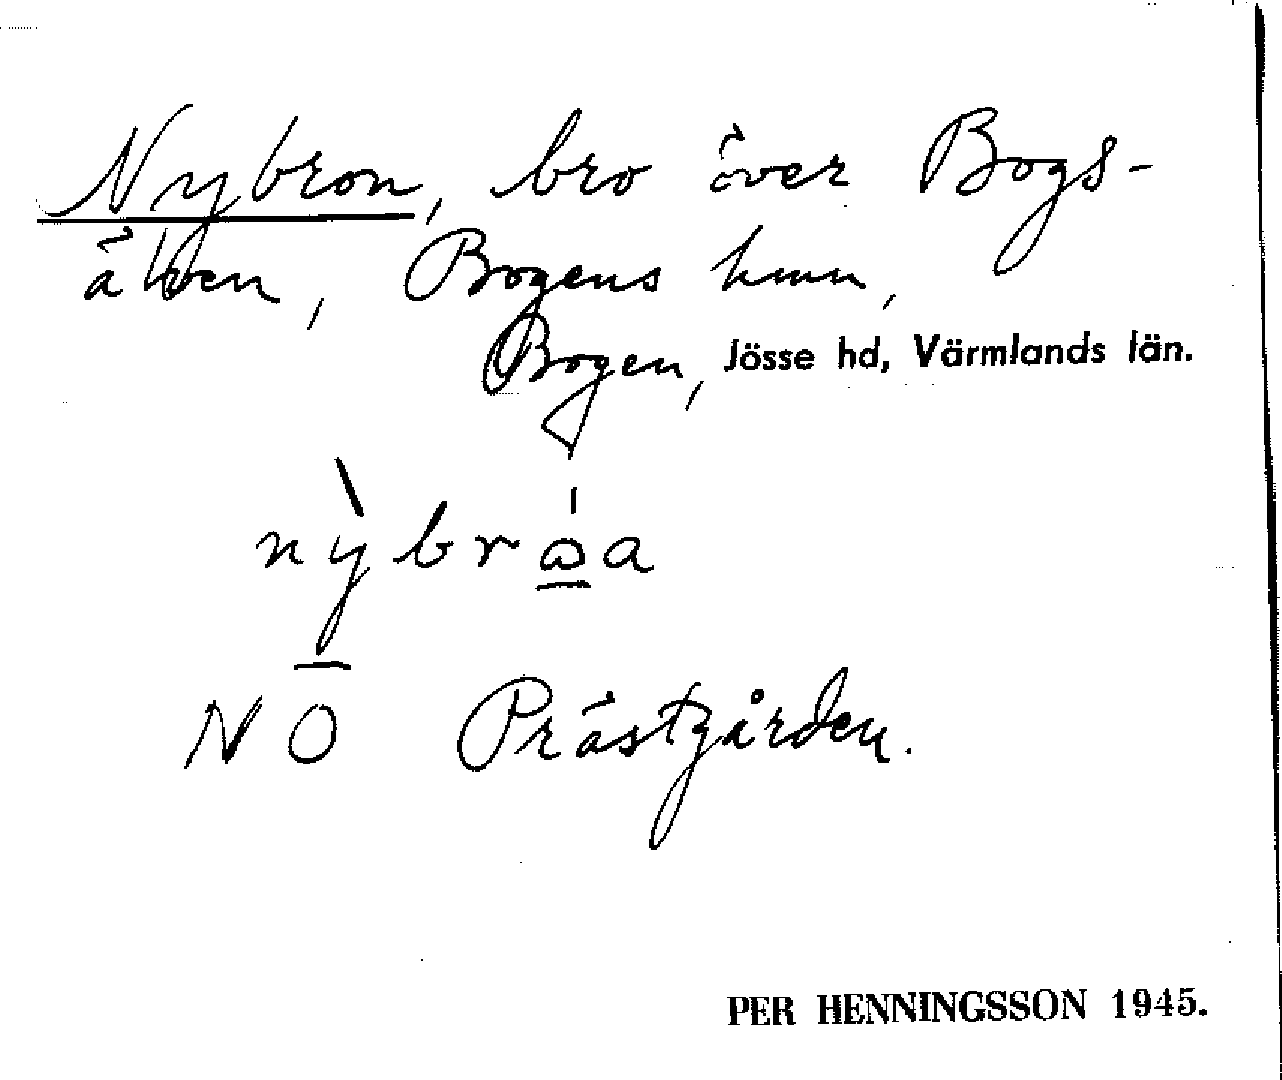 Nybron, bro över Bogs-
älven, Bogens hmn,
Bogen, Jösse hd, Värmlands län.
nỳbrɷ́a
NO Prästgården.
PER HENNINGSSON 1945.